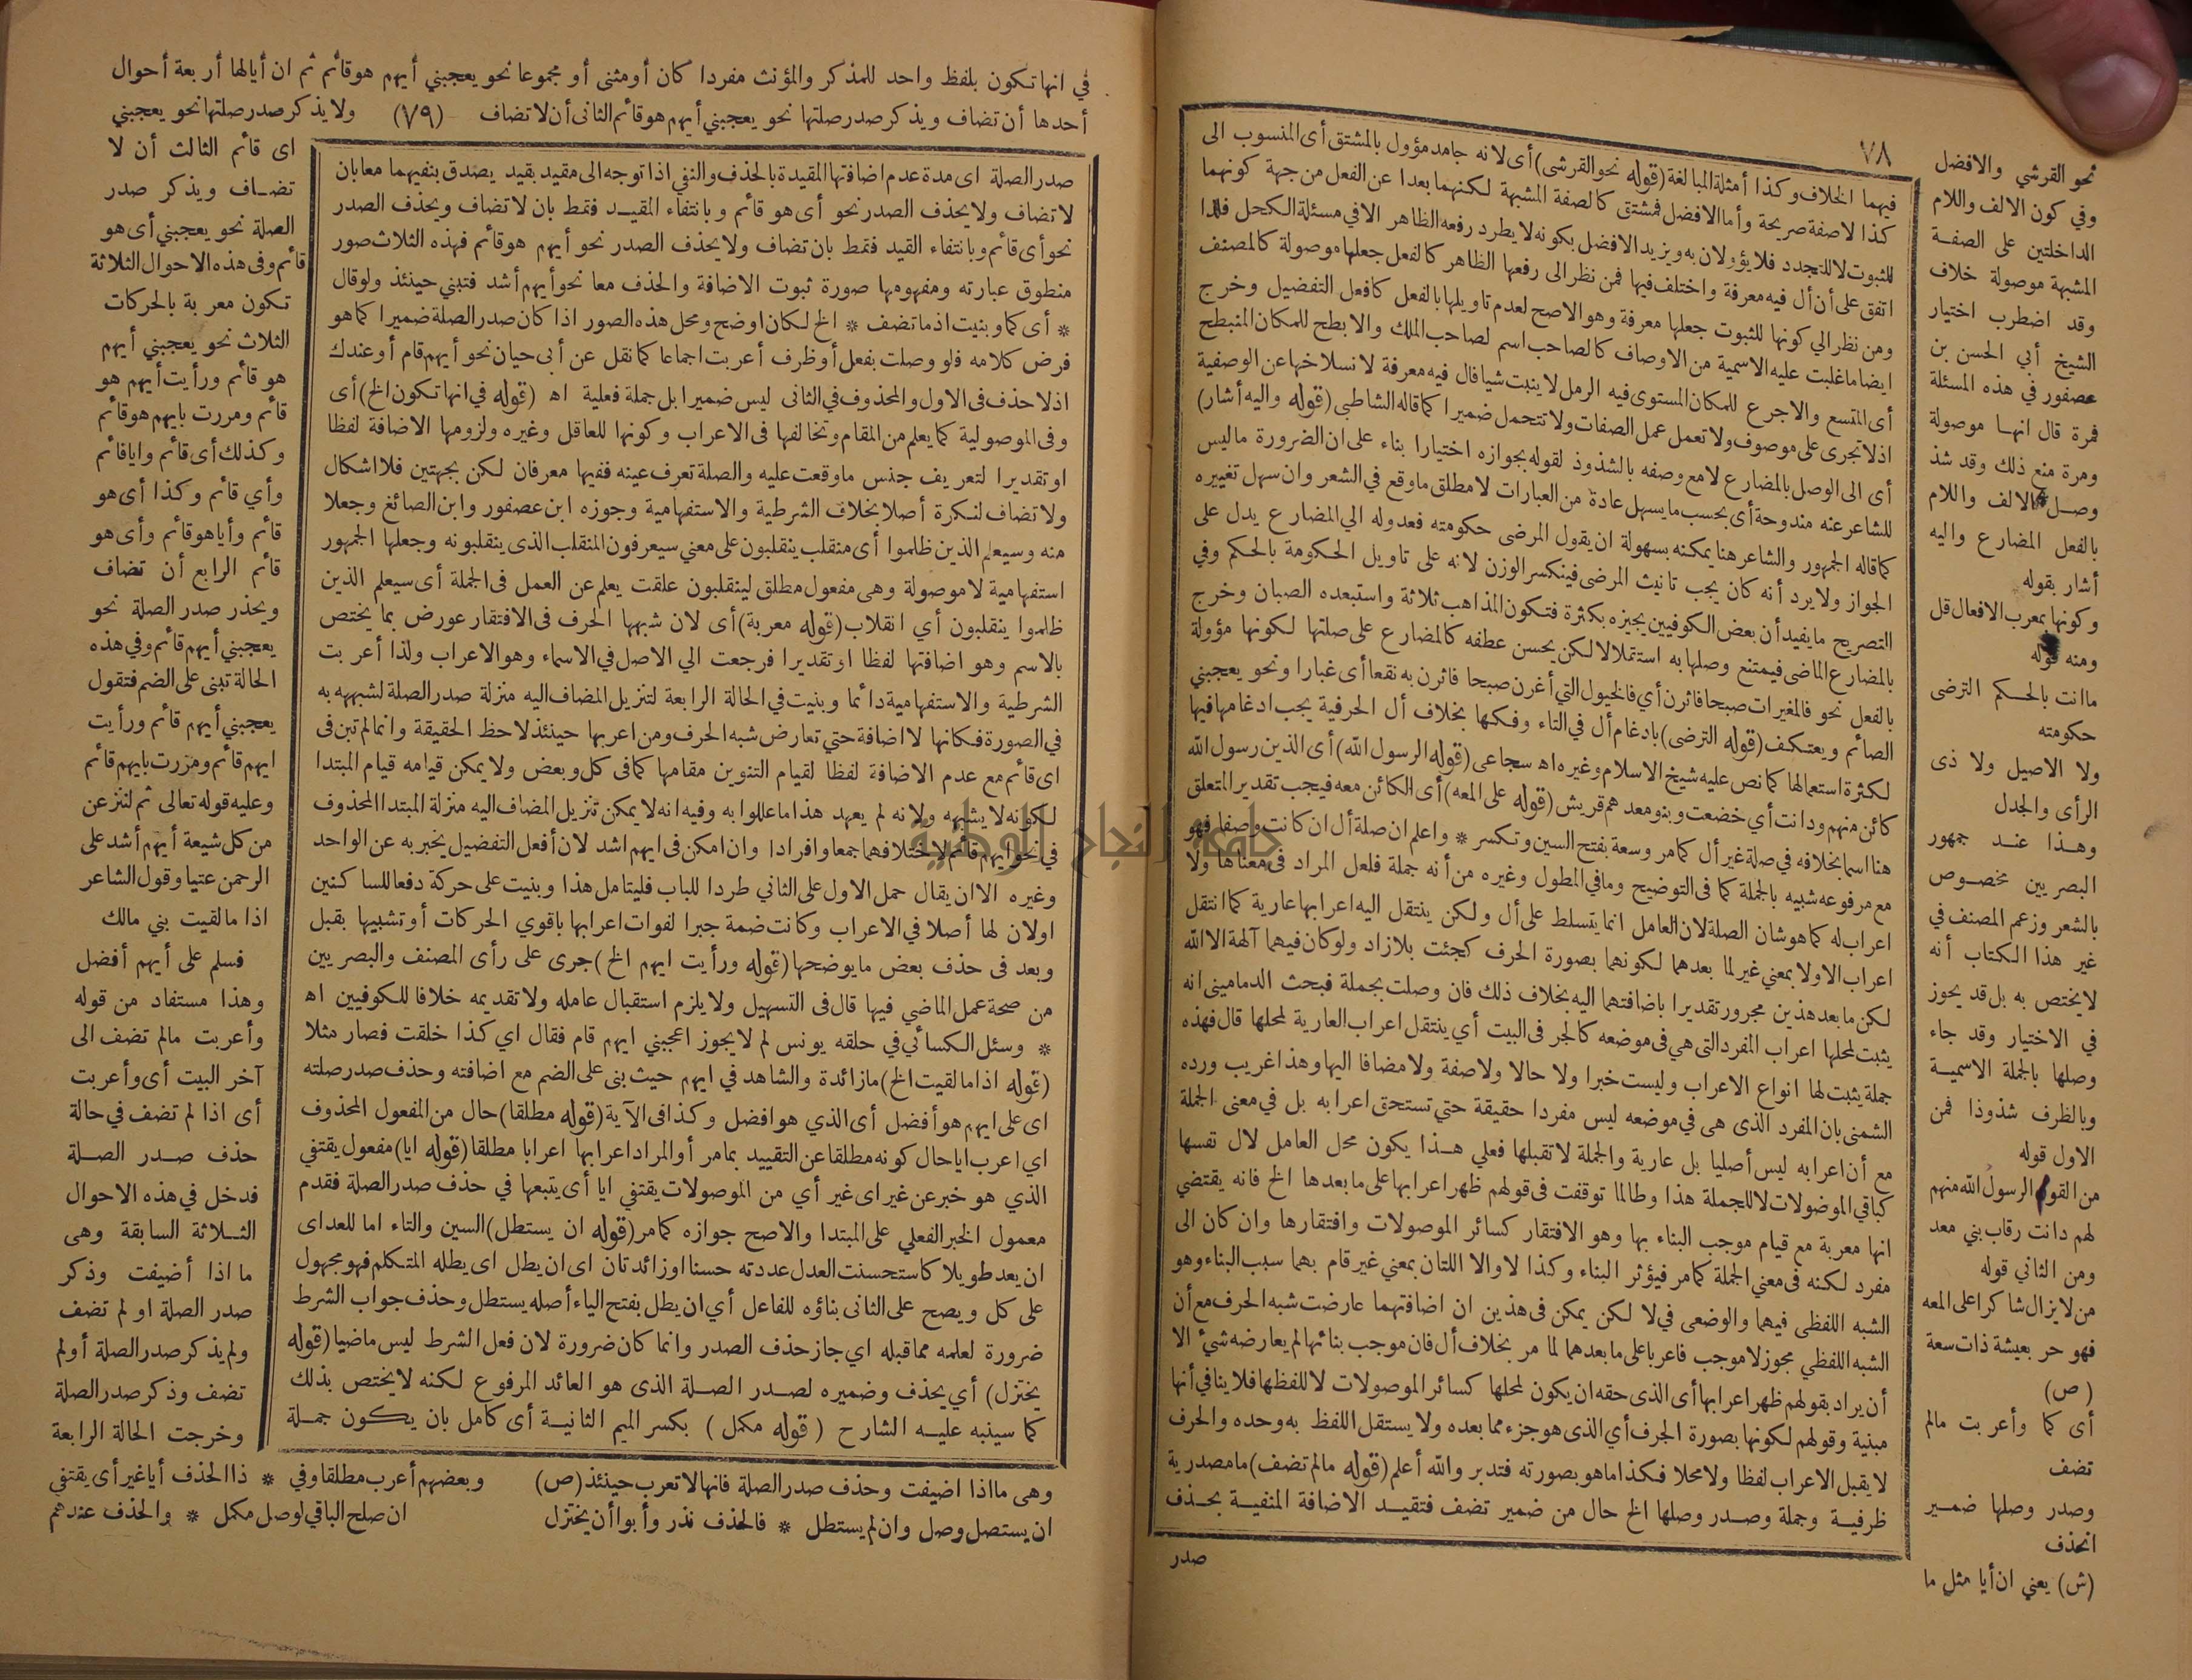 ٧٨
نحو القرشي والافضل
وفي كون الالف واللام
الداخلتين على الصفة
المشبهة موصولة خلاف
وقد اضطرب اختيار
الشيخ أبي الحسن بن
عصفور في هذه المسئلة
فمرة قال انها موصولة
ومرة منع ذلك وقد شذ
وصل الالف واللام
بالفعل المضارع واليه
أشار بقوله
وكونها بمعرب الافعال قل
ومنه قوله
ماانت بالحكم الترضى
حكومته
ولا الاصيل ولا ذى
الرأى والجدل
وهذا عند جمهور
البصريين مخصوص
بالشعر وزعم المصنف في
غير هذا الكتاب أنه
لايختص به بل قد يجوز
في الاختيار وقد جاء
وصلها بالجملة الاسمية
وبالظرف شذوذا فمن
الاول قوله
من القوم الرسول الله منهم
لهم دانت رقاب بني معد
ومن الثاني قوله
من لايزال شاكرا على المعه
فهو حر بعيشة ذات سعة
(ص)
أى كما وأعربت مالم
تضف
وصدر وصلها ضمير
انحذف
(ش) يعني ان أيا مثل ما
فيهما الخلاف وكذا أمثلة المبالغة (قوله نحو القرشى) أى لانه جامد مؤول بالمشتق أى المنسوب الى
كذا لاصفة صريحة وأما الافضل فمشتق كالصفة المشبهة لكنهما بعدا عن الفعل من جهة كونهما
للثبوت لا للتجدد فلا يؤولان به ويزيد الافضل بكونه لا يطرد رفعه الظاهر الا في مسئلة الكحل فلذا
اتفق على أن أل فيه معرفة واختلف فيها فمن نظر الى رفعها الظاهر كالفعل جعلها موصولة كالمصنف
ومن نظر الي كونها للثبوت جعلها معرفة وهو الاصح لعدم تاويلها بالفعل كافعل التفضيل وخرج
ايضا ما غلبت عليه الاسمية من الاوصاف كالصاحب اسم لصاحب الملك والابطح للمكان المنبطح
أى المتسع والاجرع للمكان المستوى فيه الرمل لاينبت شيا فال فيه معرفة لانسلاخها عن الوصفية
اذلا تجرى على موصوف ولا تعمل عمل الصفات ولا تتحمل ضميرا كما قاله الشاطبى (قوله واليه أشار)
أى الى الوصل بالمضارع لامع وصفه بالشذوذ لقوله بجوازه اختيارا بناء على ان الضرورة ماليس
للشاعر عنه مندوحة أى بحسب ما يسهل عادة من العبارات لا مطلق ما وقع في الشعر وان سهل تغييره
كما قاله الجمهور والشاعر هنا يمكنه بسهولة ان يقول المرضى حكومته فعدوله الي المضارع يدل على
الجواز ولا يرد أنه كان يجب تانيث المرضى فينكسر الوزن لانه على تاويل الحكومة بالحكم وفي
التصريح ما يفيد أن بعض الكوفيين يجيزه بكثرة فتكون المذاهب ثلاثة واستبعده الصبان وخرج
بالمضارع الماضى فيمتنع وصلها به استقلالا لكن يحسن عطفه كالمضارع على صلتها لكونها مؤولة
بالفعل نحو فالمغيرات صبحا فاثرن أي فالخيول التي أغرن صبحا فاثرن به نقعا أى غبارا ونحو يعجبني
الصائم ويعتكف (قوله الترضى) بادغام أل في التاء وفكها بخلاف أل الحرفية يجب ادغامها فيها
لكثرة استعمالها كما نص عليه شيخ الاسلام وغيره اه سجاعى (قوله الرسول الله) أى الذين رسول الله
كائن منهم ودانت أي خضعت وبنو معد هم قريش (قوله على المعه) أى الكائن معه فيجب تقدير المتعلق
هنا اسما بخلافه في صلة غير أل كما مر وسعة بفتح السين وتكسر * واعلم ان صلة أل ان كانت وصفا فهو
مع مرفوعه شبيه بالجملة كما فى التوضيح وما في المطول وغيره من أنه جملة فلعل المراد فى معناها ولا
اعراب له كما هو شان الصلة لان العامل انما يتسلط على أل ولكن ينتقل اليه اعرابها عارية كما انتقل
اعراب الاولا بمعني غير لما بعدهما لكونهما بصورة الحرف كجئت بلا زاد ولو كان فيهما آلهة الا الله
لكن ما بعد هذين مجرور تقديرا باضافتهما اليه بخلاف ذلك فان وصلت بجملة فبحث الدمامينى انه
يثبت لمحلها اعراب المفرد التى هي فى موضعه كالجر فى البيت أي ينتقل اعراب العارية لمحلها قال فهذه
جملة يثبت لها انواع الاعراب وليست خبرا ولا حالا ولا صفة ولا مضافا اليها وهذا غريب ورده
الشمنى بان المفرد الذى هى في موضعه ليس مفردا حقيقة حتي تستحق اعرابه بل في معنى الجملة
مع أن اعرابه ليس أصليا بل عارية والجملة لا تقبلها فعلي هذا يكون محل العامل لال نفسها
كباقي الموصولات لا للجملة هذا وطالما توقفت فى قولهم ظهر اعرابها على ما بعدها الخ فانه يقتضي
انها معربة مع قيام موجب البناء بها وهو الافتقار كسائر الموصولات وافتقارها وان كان الى
مفرد لكنه فى معني الجملة كما مر فيؤثر البناء وكذا لا والا اللتان بمعني غير قام بهما سبب البناء وهو
الشبه اللفظى فيهما والوضعى في لا لكن يمكن فى هذين ان اضافتهما عارضت شبه الحرف مع أن
الشبه اللفظي مجوز لا موجب فاعربا على ما بعدهما لما مر بخلاف أل فان موجب بنائها لم يعارضه شيء الا
أن يراد بقولهم ظهر اعرابها أى الذى حقه ان يكون لمحلها كسائر الموصولات لا للفظها فلا ينافي أنها
مبنية وقولهم لكونها بصورة الحرف أي الذى هو جزء مما بعده ولا يستقل اللفظ به وحده والحرف
لا يقبل الاعراب لفظا ولا محلا فكذا ما هو بصورته فتدبر والله أعلم (قوله مالم تضف) ما مصدرية
ظرفية وجملة وصدر وصلها الخ حال من ضمير تضف فتقيد الاضافة المنفية بحذف
صدر
في انها تكون بلفظ واحد للمذكر والمؤنث مفردا كان أو مثنى أو مجموعا نحو يعجبني أيهم هو قائم ثم ان أيا لها أربعة أحوال
أحدها أن تضاف ويذكر صدر صلتها نحو يعجبني أيهم هو قائم الثانى أن لا تضاف (٧٩) ولا يذكر صدر صلتها نحو يعجبني
اى قائم الثالث أن لا
تضاف ويذكر صدر
الصلة نحو يعجبني أى هو
قائم وفى هذه الاحوال الثلاثة
تكون معربة بالحركات
الثلاث نحو يعجبني أيهم
هو قائم ورأيت أيهم هو
قائم ومررت بايهم هو قائم
وكذلك أى قائم وايا قائم
وأي قائم وكذا أى هو
قائم وأيا هو قائم وأى هو
قائم الرابع أن تضاف
ويحذر صدر الصلة نحو
يعجبني أيهم قائم وفي هذه
الحالة تبنى على الضم فتقول
يعجبني أيهم قائم ورأيت
ايهم قائم ومررت بايهم قائم
وعليه قوله تعالى ثم لننزعن
من كل شيعة أيهم أشد على
الرحمن عتيا وقول الشاعر
اذا ما لقيت بني مالك
فسلم على أيهم أفضل
وهذا مستفاد من قوله
وأعربت مالم تضف الى
آخر البيت أى وأعربت
أى اذا لم تضف في حالة
حذف صدر الصلة
فدخل في هذه الاحوال
الثلاثة السابقة وهى
ما اذا أضيفت وذكر
صدر الصلة او لم تضف
ولم يذكر صدر الصلة أو لم
تضف وذكر صدر الصلة
وخرجت الحالة الرابعة
صدر الصلة اى مدة عدم اضافتها المقيدة بالحذف والنفي اذا توجه الى مقيد بقيد يصدق بنفيهما معا بان
لا تضاف ولا يحذف الصدر نحو أى هو قائم وبانتفاء المقيد فقط بان لا تضاف ويحذف الصدر
نحو أى قائم وبانتفاء القيد فقط بان تضاف ولا يحذف الصدر نحو أيهم هو قائم فهذه الثلاث صور
منطوق عبارته ومفهومها صورة ثبوت الاضافة والحذف معا نحو أيهم أشد فتبني حينئذ ولو قال
* أى كما وبنيت اذ ما تضف * الخ لكان اوضح ومحل هذه الصور اذا كان صدر الصلة ضميرا كما هو
فرض كلامه فلو وصلت بفعل أو ظرف أعربت اجماعا كما نقل عن أبى حيان نحو أيهم قام أو عندك
اذ لا حذف فى الاول والمحذوف في الثانى ليس ضميرا بل جملة فعلية اه (قوله في انها تكون الخ) أى
وفى الموصولية كما يعلم من المقام وتخالفها فى الاعراب وكونها للعاقل وغيره ولزومها الاضافة لفظا
او تقديرا لتعريف جنس ما وقعت عليه والصلة تعرف عينه ففيها معرفان لكن بجهتين فلا اشكال
ولا تضاف لنكرة أصلا بخلاف الشرطية والاستفهامية وجوزه ابن عصفور وابن الصائغ وجعلا
منه وسيعلم الذين ظلموا أى منقلب ينقلبون على معني سيعرفون المنقلب الذى ينقلبونه وجعلها الجمهور
استفهامية لا موصولة وهى مفعول مطلق لينقلبون علقت يعلم عن العمل فى الجملة أى سيعلم الذين
ظلموا ينقلبون أي انقلاب (قوله معربة) أى لان شبهها الحرف فى الافتقار عورض بما يختص
بالاسم وهو اضافتها لفظا او تقديرا فرجعت الي الاصل في الاسماء وهو الاعراب ولذا أعربت
الشرطية والاستفهامية دائما وبنيت في الحالة الرابعة لتنزيل المضاف اليه منزلة صدر الصلة لشبهه به
في الصورة فكانها لا اضافة حتي تعارض شبه الحرف ومن اعربها حينئذ لاحظ الحقيقة وانما لم تبن فى
اى قائم مع عدم الاضافة لفظا لقيام التنوين مقامها كما فى كل وبعض ولا يمكن قيامه قيام المبتدا
لكونه لا يشبهه ولانه لم يعهد هذا ما عللوا به وفيه انه لا يمكن تنزيل المضاف اليه منزلة المبتدا المحذوف
في نحو ايهم قائم لاختلافهما جمعا وافرادا وان امكن فى ايهم اشد لان أفعل التفضيل يخبر به عن الواحد
وغيره الا ان يقال حمل الاول على الثاني طردا للباب فليتامل هذا وبنيت على حركة دفعا للساكنين
اولان لها أصلا في الاعراب وكانت ضمة جبرا لفوات اعرابها باقوي الحركات أو تشبيها بقبل
وبعد فى حذف بعض ما يوضحها (قوله ورأيت ايهم الخ) جرى على رأى المصنف والبصريين
من صحة عمل الماضي فيها قال فى التسهيل ولا يلزم استقبال عامله ولا تقديمه خلافا للكوفيين اه
* وسئل الكسائي في حلقه يونس لم لا يجوز اعجبني ايهم قام فقال اي كذا خلقت فصار مثلا
(قوله اذا ما لقيت الخ) ما زائدة والشاهد في ايهم حيث بنى على الضم مع اضافته وحذف صدر صلته
اى على ايهم هو أفضل أى الذي هو افضل وكذا فى الآية (قوله مطلقا) حال من المفعول المحذوف
اي اعرب ايا حال كونه مطلقا عن التقييد بما مر أو المراد اعرابها اعرابا مطلقا (قوله ايا) مفعول يقتفي
الذي هو خبر عن غير اى غير أي من الموصولات يقتفي ايا أى يتبعها في حذف صدر الصلة فقدم
معمول الخبر الفعلي على المبتدا والاصح جوازه كما مر (قوله ان يستطل) السين والتاء اما للعد اى
ان يعد طويلا كاستحسنت العدل عددته حسنا او زائدتان اى ان يطل اى يطله المتكلم فهو مجهول
على كل ويصح على الثانى بناؤه للفاعل أي ان يطل بفتح الياء أصله يستطل وحذف جواب الشرط
ضرورة لعلمه مما قبله اي جاز حذف الصدر وانما كان ضرورة لان فعل الشرط ليس ماضيا (قوله
يختزل) أي يحذف وضميره لصدر الصلة الذى هو العائد المرفوع لكنه لا يختص بذلك
كما سينبه عليه الشارح (قوله مكمل) بكسر الميم الثانية أى كامل بان يكون جملة
وهى ما اذا اضيفت وحذف صدر الصلة فانها لا تعرب حينئذ (ص) وبعضهم أعرب مطلقا وفي * ذا الحذف أيا غير أى يقتفي
ان يستصل وصل وان لم يستطل * فالحذف نذر وأبوا أن يختزل ان صلح الباقي لوصل مكمل * والحذف عندهم
جامعة النجاح الوطنية